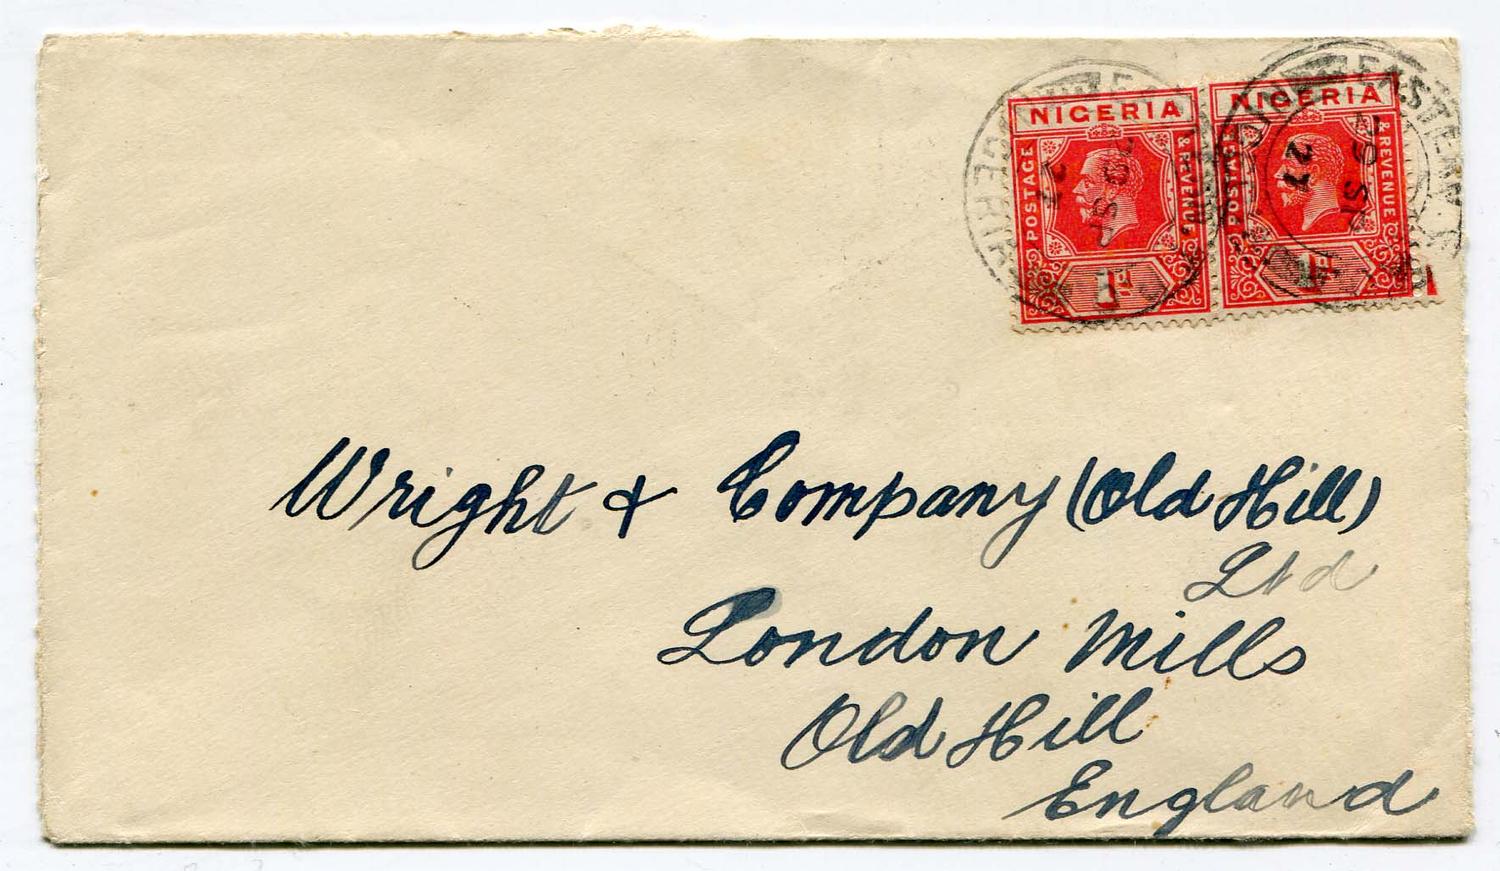 NIGERIA
POSTAGE
& REVENUE
1d
NIGERIA
POSTAGE
& REVENUE
1d
EASTERN
NIGERIA
SP
27
EASTERN
SP
27
Wright & Company (Old Hill)
Ltd
London Mills
Old Hill
England